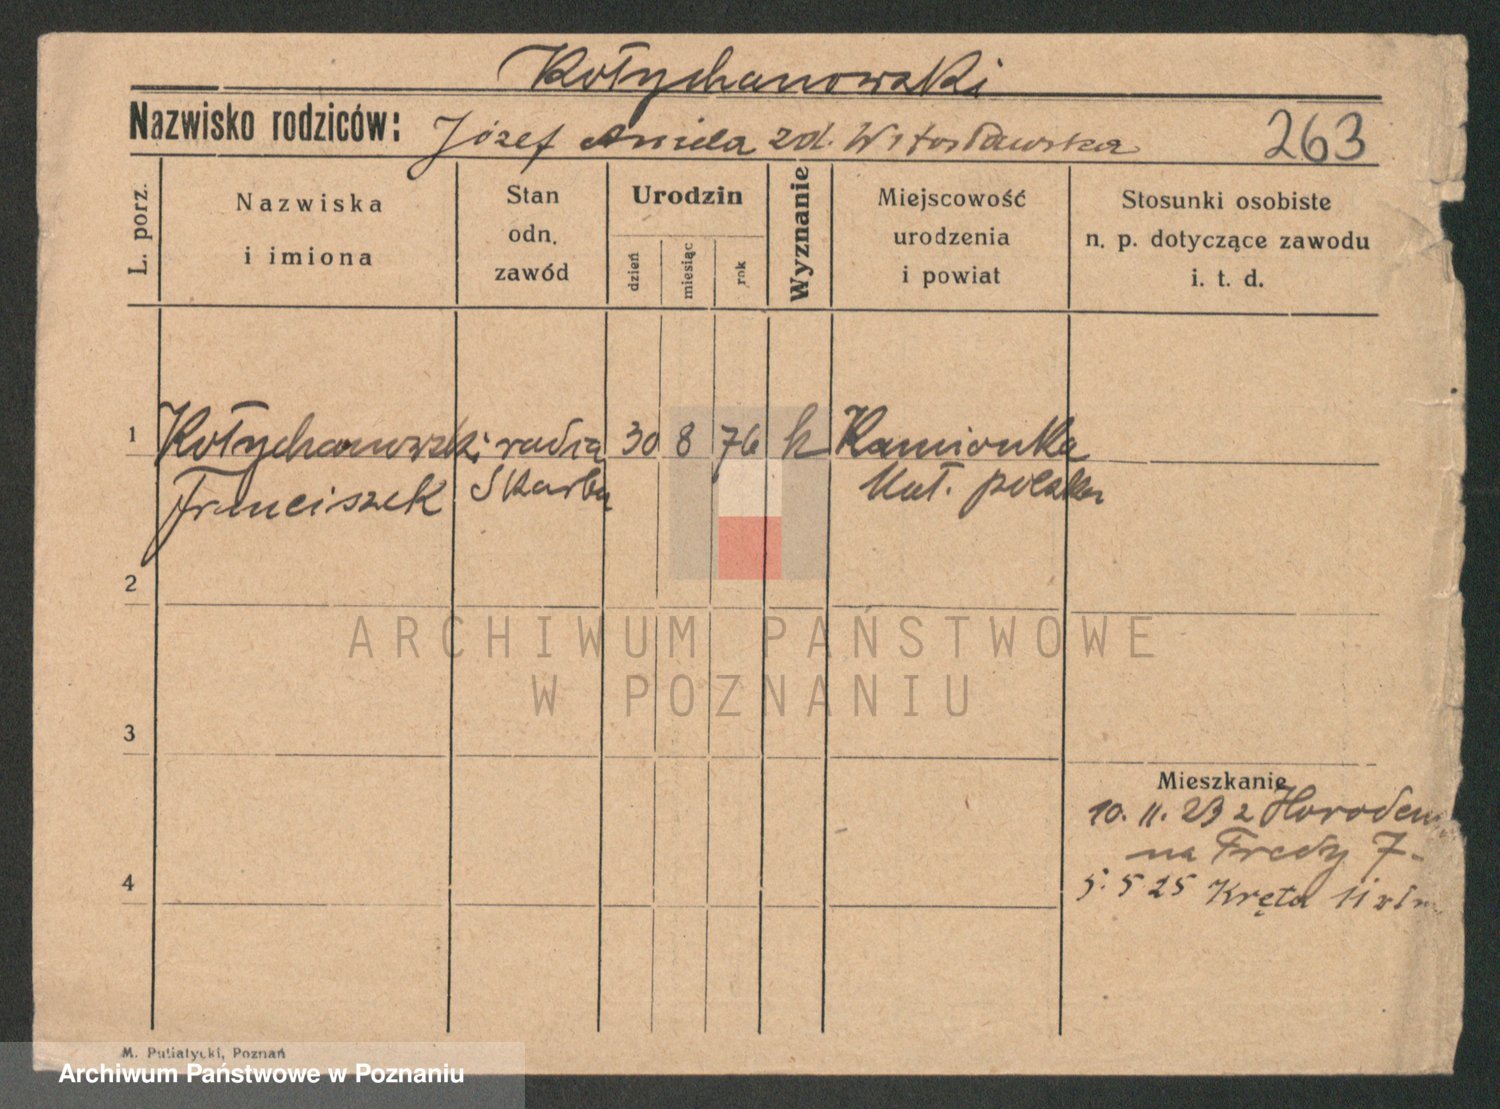 Kołychanowski
Nazwisko rodziców:
Józef Aniela zd. Witosławska
263
L. porz.
Nazwiska
i imiona
Stan
odn.
zawód
Urodzin
dzień
miesiąc
rok
Wyznanie
Miejscowość
urodzenia
i powiat
Stosunki osobiste
n. p. dotyczące zawodu
i. t. d.
1
Kołychanowski radca 30 8 76 k Kamionka
Franciszek Skarbu
2
ARCHIWUM PAŃSTWOWE
W POZNANIU
3
Mieszkanie
10. 11. 23 z
na Fredry 7
4
5. 5 25 Kręta 11
M. Putiatycki, Poznań
Archiwum Państwowe w Poznaniu